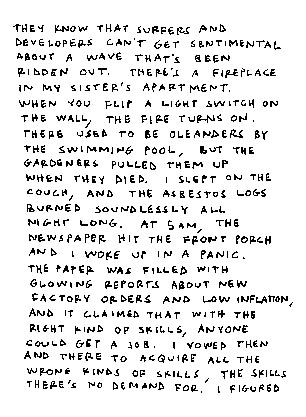 THEY KNOW THAT SURFERS AND
DEVELOPERS CAN'T GET SENTIMENTAL
ABOUT A WAVE THAT'S BEEN
RIDDEN OUT. THERE'S A FIREPLACE
IN MY SISTER'S APARTMENT.
WHEN YOU FLIP A LIGHT SWITCH ON
THE WALL, THE FIRE TURNS ON.
THERE USED TO BE OLEANDERS BY
THE SWIMMING POOL, BUT THE
GARDENERS PULLED THEM UP
WHEN THEY DIED. I SLEPT ON THE
COUCH, AND THE ASBESTOS LOGS
BURNED SOUNDLESSLY ALL
NIGHT LONG. AT 5AM, THE
NEWSPAPER HIT THE FRONT PORCH
AND I WOKE UP IN A PANIC.
THE PAPER WAS FILLED WITH
GLOWING REPORTS ABOUT NEW
FACTORY ORDERS AND LOW INFLATION,
AND IT CLAIMED THAT WITH THE
RIGHT KIND OF SKILLS, ANYONE
COULD GET A JOB. I VOWED THEN
AND THERE TO ACQUIRE ALL THE
WRONG KINDS OF SKILLS, THE SKILLS
THERE'S NO DEMAND FOR. I FIGURED